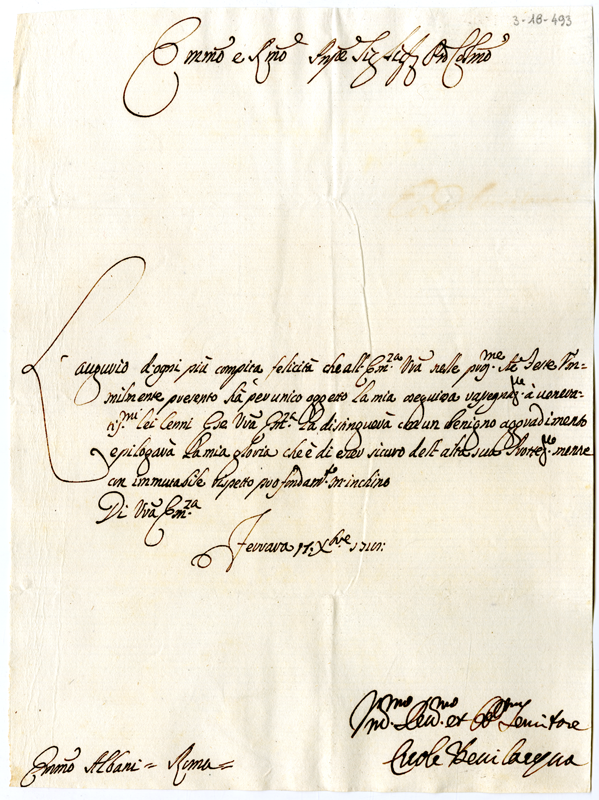 3-18-493
Emmo e Rmo Sigr
L'augurio d'ogni più compita felicità che all'Emza Vrã nelle prosme Ste Feste Umi-
lmente presento hà per unico oggetto la mia ossequiosa à venera-
tismi Lei Cenni. E se Vrã Emza la distinguerà con un benigno aggradimento
epilogarà la mia gloria che è di esser sicuro dell'alta sua mentre
con immutabile rispetto profondamte m'inchino
Di Vrã Emza
Ferrara 17. Xbre
Devmo et Obbmo Servitore
Ercole Bevilacqua
Emmo Albani = Roma =